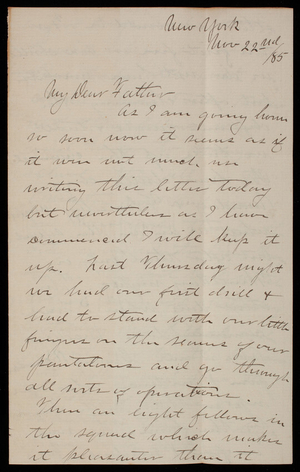 New York
Nov 22nd/85
My Dear Father
As I am going home
so soon now it seems as if
it was not much use
writing this letter today
but nevertheless as I have
commenced I will keep it
up. Last Thursday night
we had our first drill &
had to stand with our little
fingers on the seams of our
pantaloons and go through
all sorts of operations.
There are eight fellows in
the squad which makes
it pleasanter than it